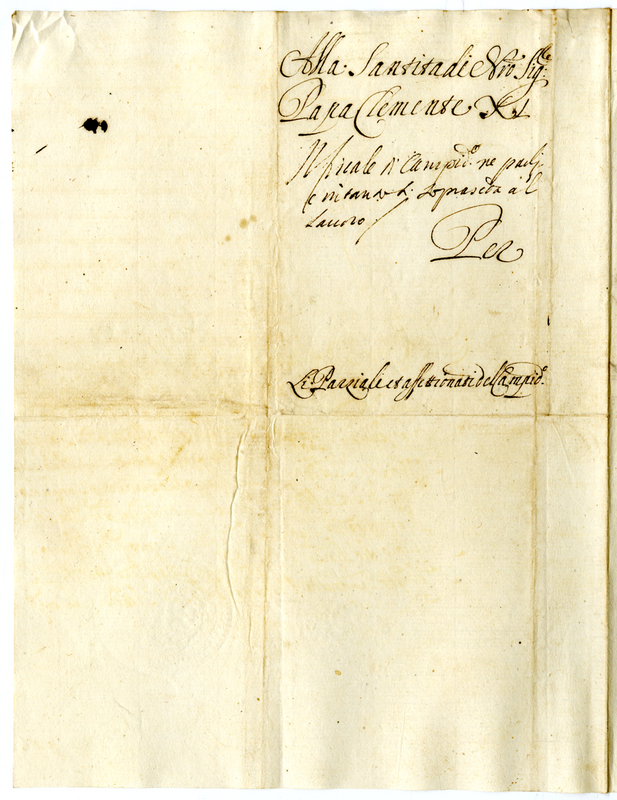 Alla Santità di Nro Sigre
Papa Clemente XI
Il fiscale di Campidº. ne parli
e intanto si soprasieda al
Lauoro
Per
Li Parziali et affettionati del Campidº.